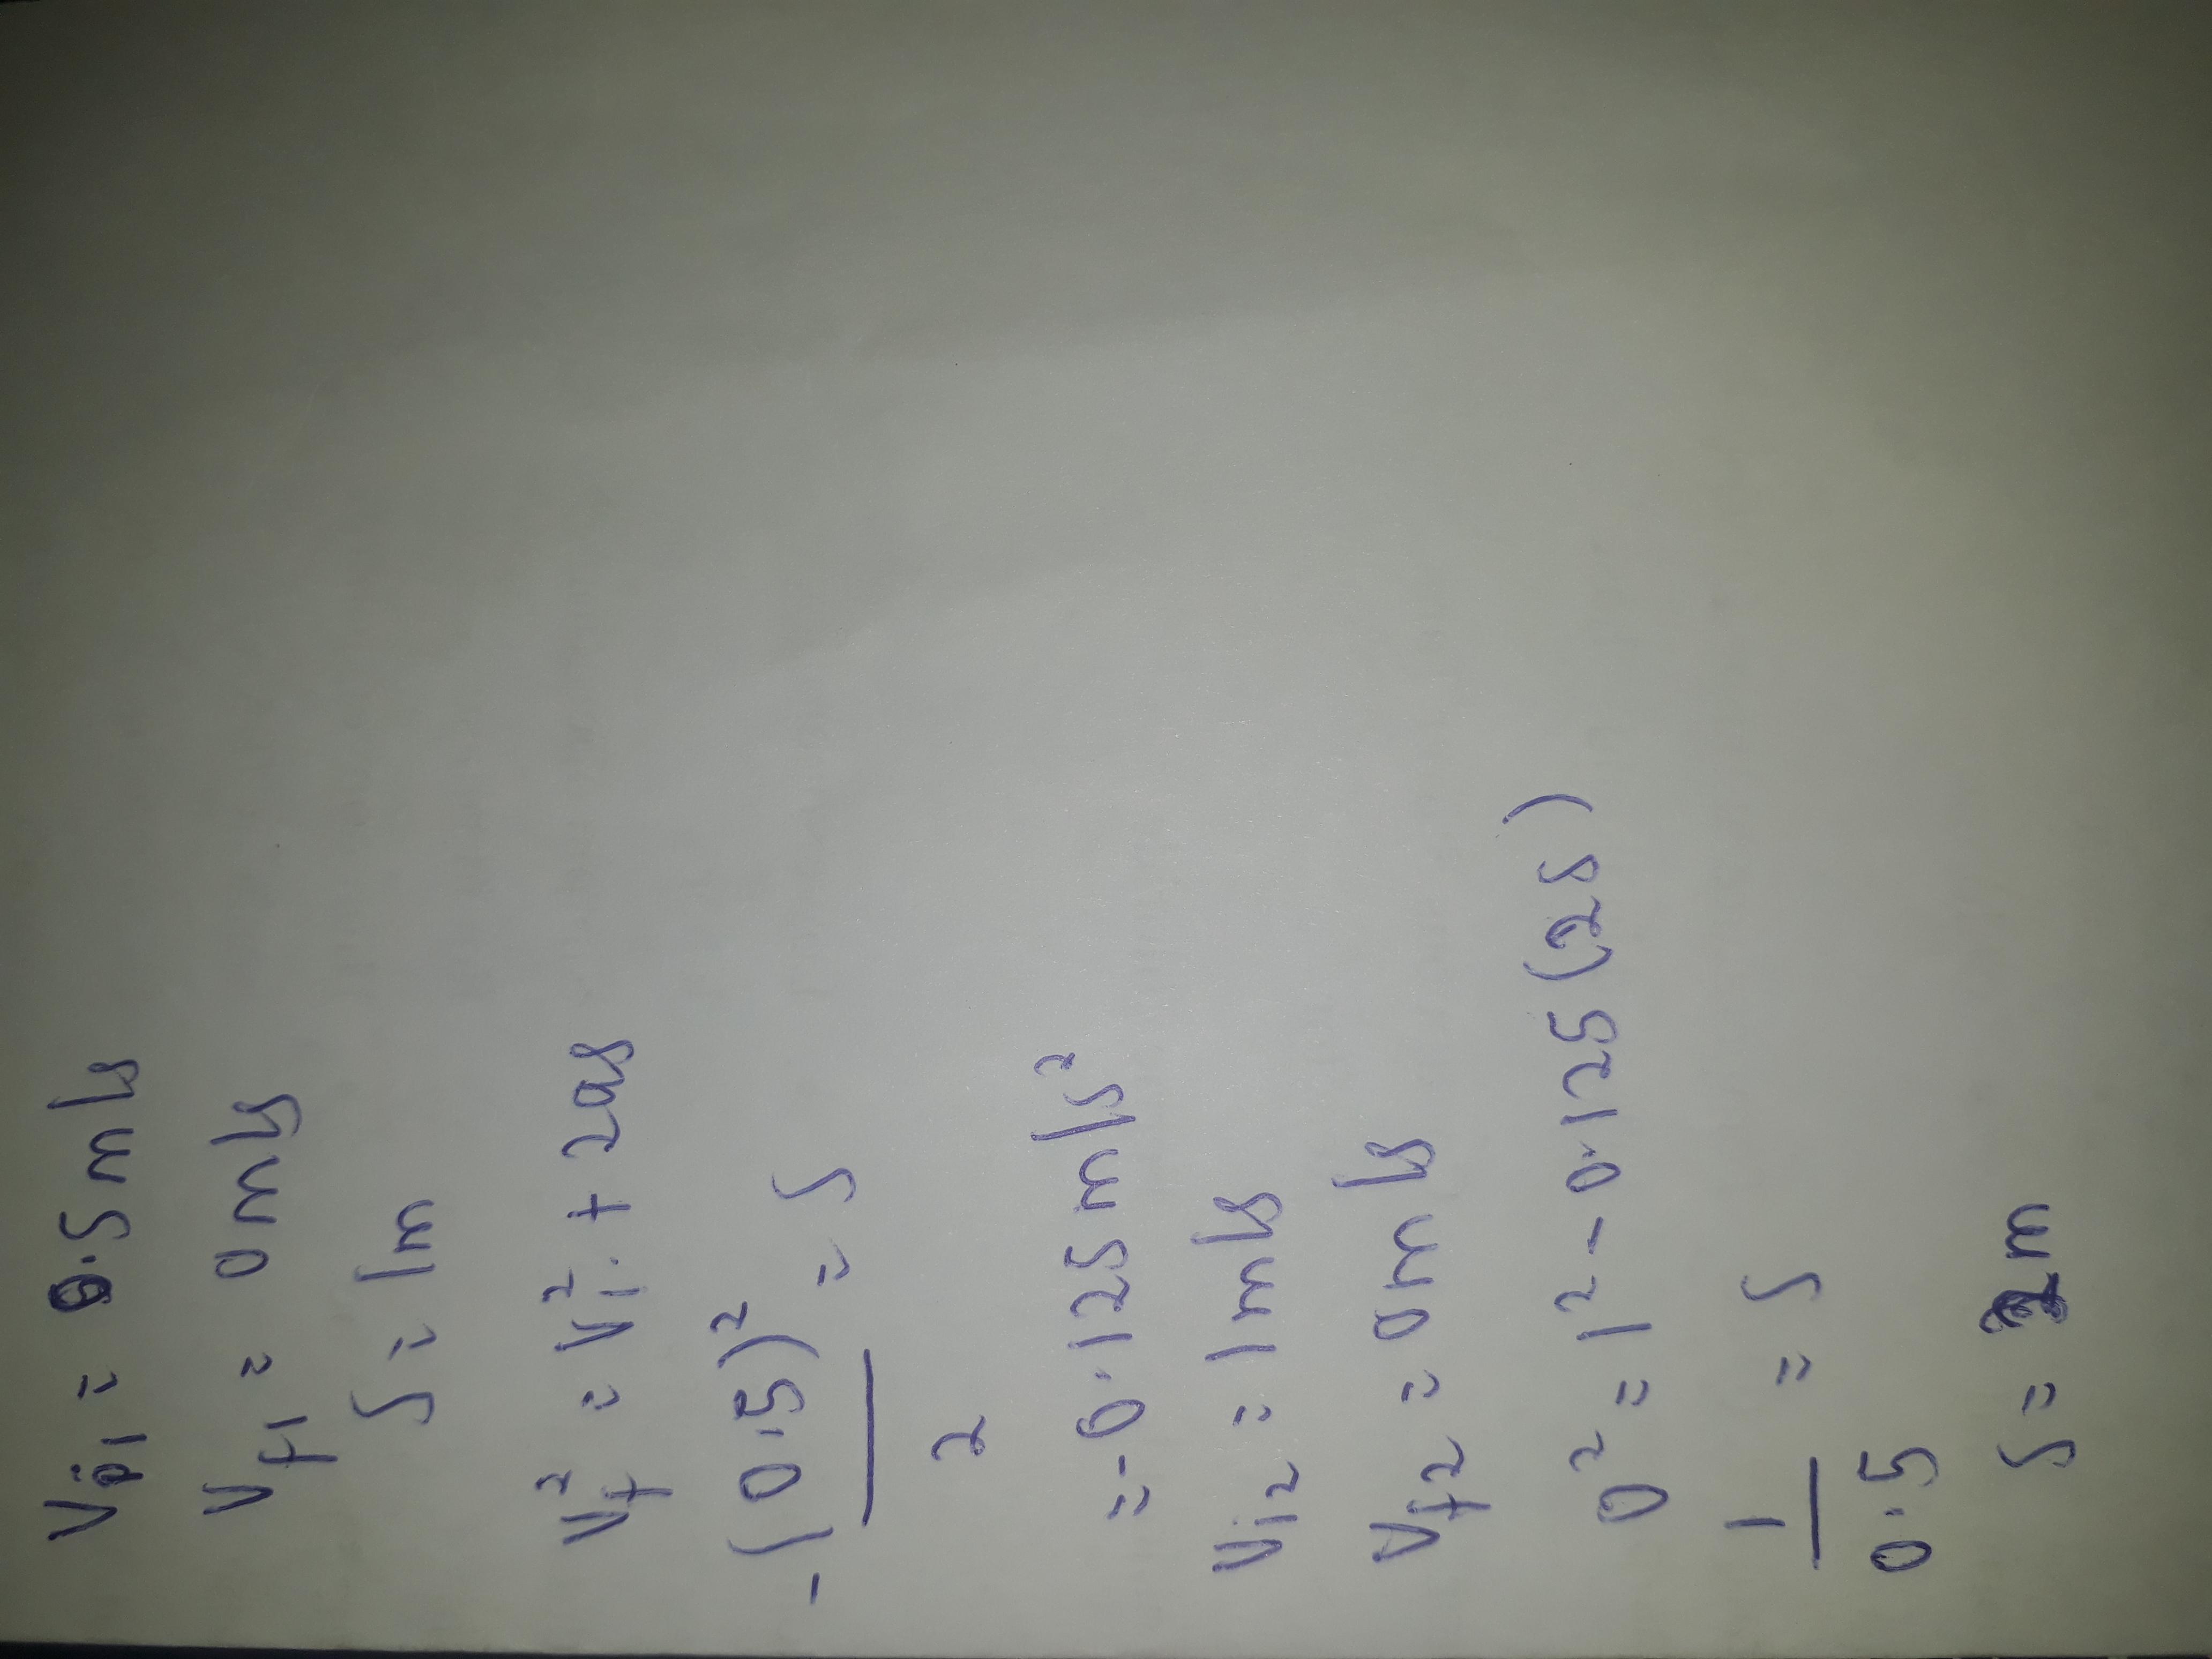 Vi1 = 0.5 m/s
Vf1 = 0m/s
S = 1m
Vf² = Vi² + 2as
-(0.5)² = S
2
= -0.125 m/s²
Vi2 = 1m/s
Vf2 = 0m/s
0² = 1² - 0.125(2s)
1 = S
0.5
S = 2m